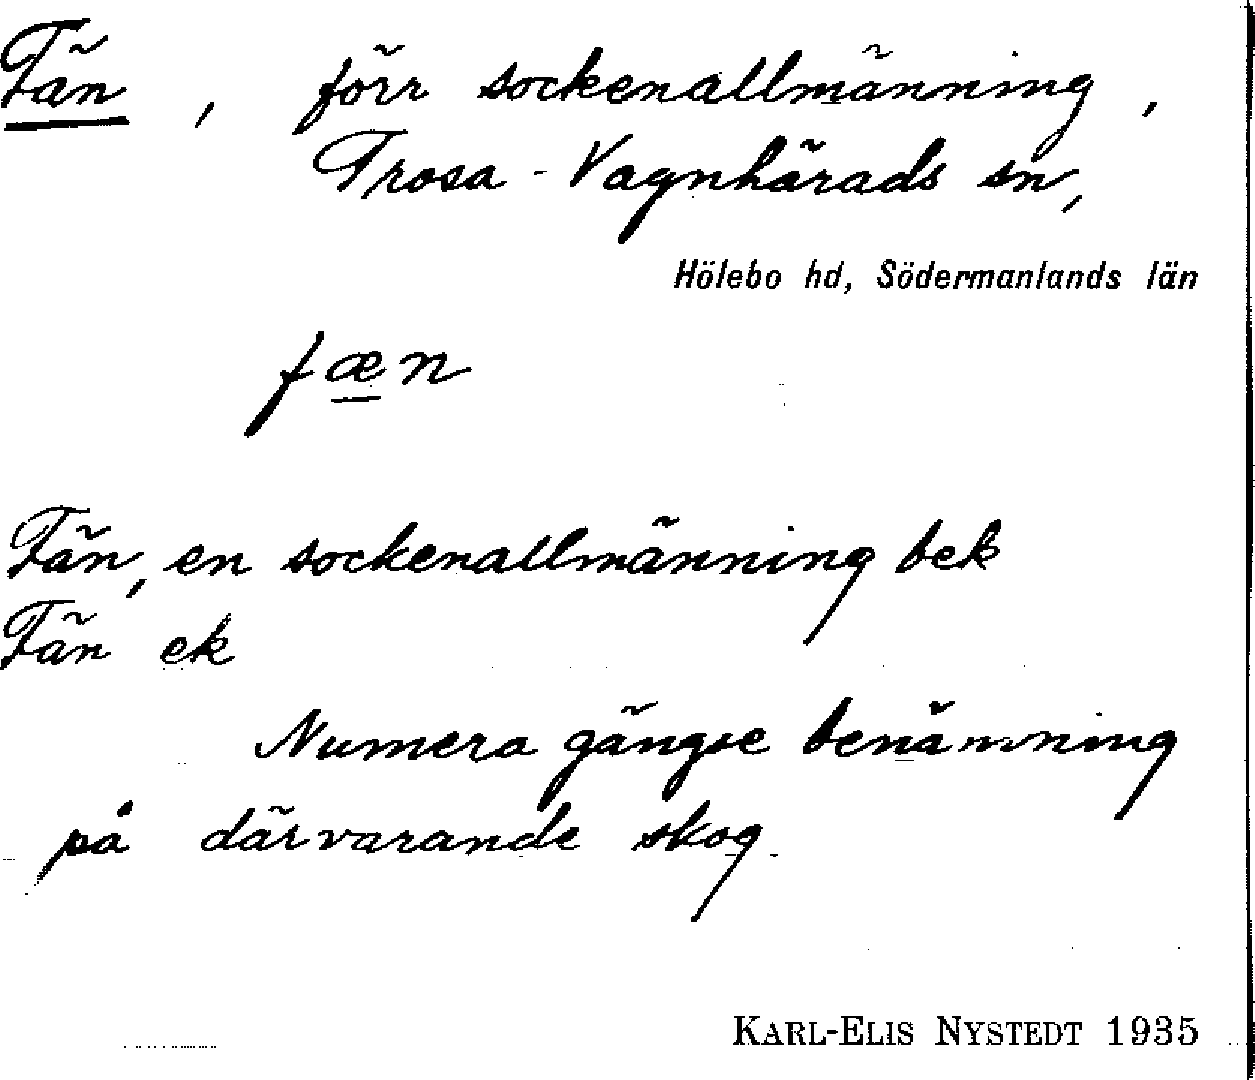 Fän, förr sockenallmänning,
Trosa-Vagnhärads sn,
Hölebo hd, Södermanlands län
fæn
Fän, en sockenallmänning bek
Fän ek
Numera gängse benämning
på därvarande skog
KARL-ELIS NYSTEDT 1935